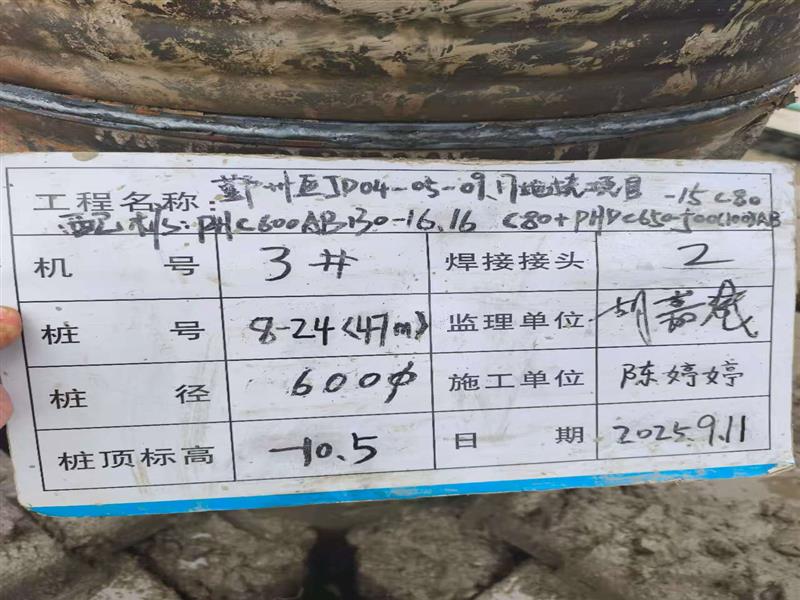 工程名称: 鄞州区JD04-05-09.17地块项目
配桩: PHC600AB130-16.16 C80+PHDC650-500(100)AB -15 C80
机号 3# 焊接接头 2
桩号 8-24(47m) 监理单位 胡嘉斌
桩径 600ϕ 施工单位 陈婷婷
桩顶标高 -10.5 日期 2025.9.11